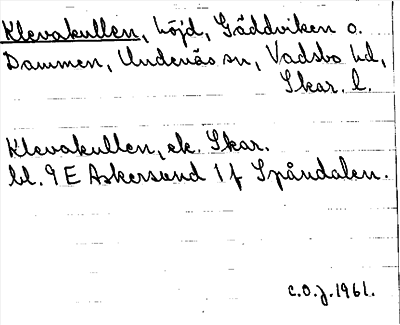 Klevakullen, höjd, Gäddviken o.
Dammen, Undenäs sn, Vadsbo hd,
Skar. l.
Klevakullen, ek. Skar.
bl. 9 E Askersund 1 f Spåndalen.
C.O.J. 1961.